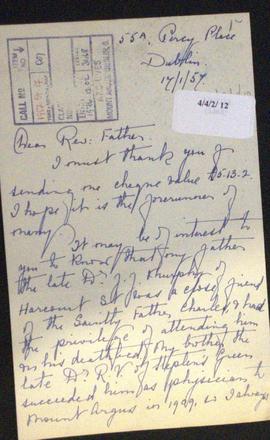 55A, Percy Place
Dublin.
17/1/57
4/4/2/ 12
CALL NO
Dear Rev: Father.
I must thank you for
sending me cheque value £5-13-2.
I hope it is the forerunner of
many.
It may be of interest to
you to know that my father
the late Dr. J. J. Murphy of
Harcourt St. was a close friend
of the Saintly Father Charles & had
the privilege of attending him
on his deathbed. My brother the
late Dr. R. V. of Stephen's Green
succeeded him as physician to
Mount Argus in 1929, so I always